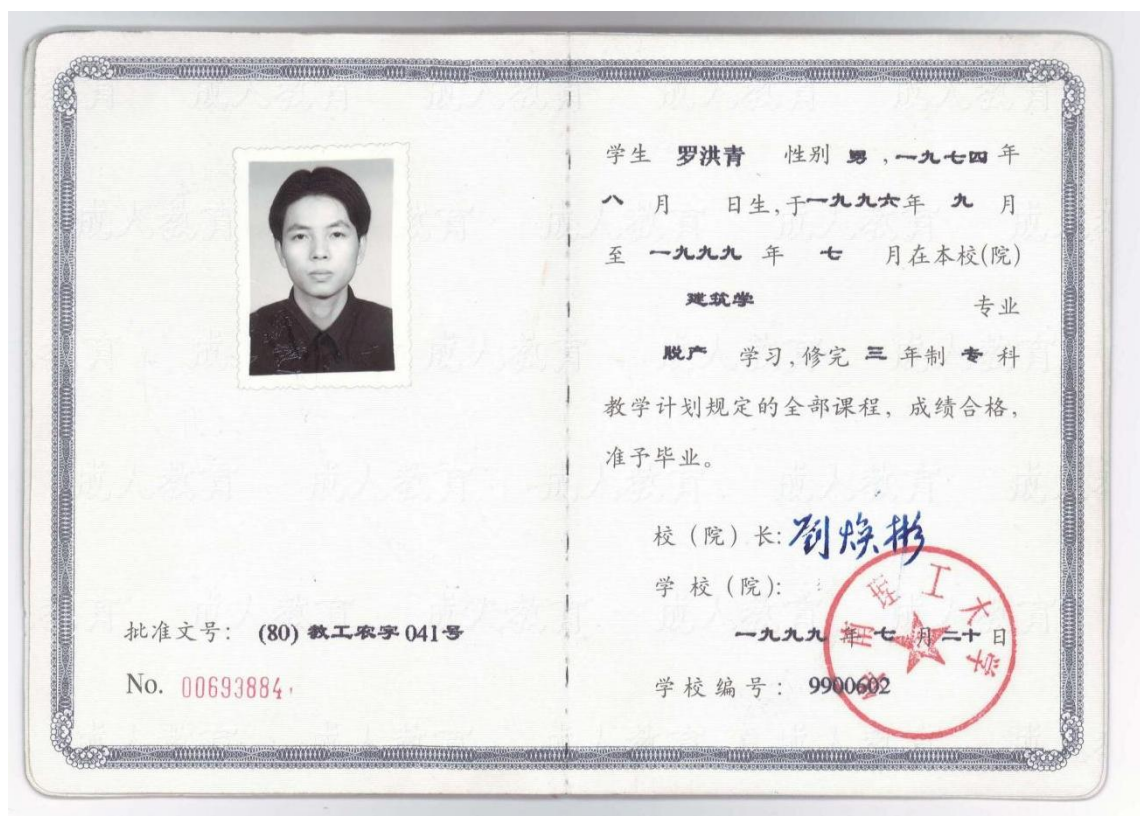 批准文号: (80) 教工农字 041号
No. 00693884
学生 罗洪青 性别 男 ,一九七四 年
八 月 日生,于一九九六年 九 月
至 一九九九 年 七 月在本校(院)
建筑学 专业
脱产 学习,修完 三 年制 专 科
教学计划规定的全部课程, 成绩合格,
准予毕业。
校 (院) 长: 刘焕彬
学 校 (院):
华南理工大学
一九九九 年 七 月 二十 日
学 校 编 号: 9900602
成人教育